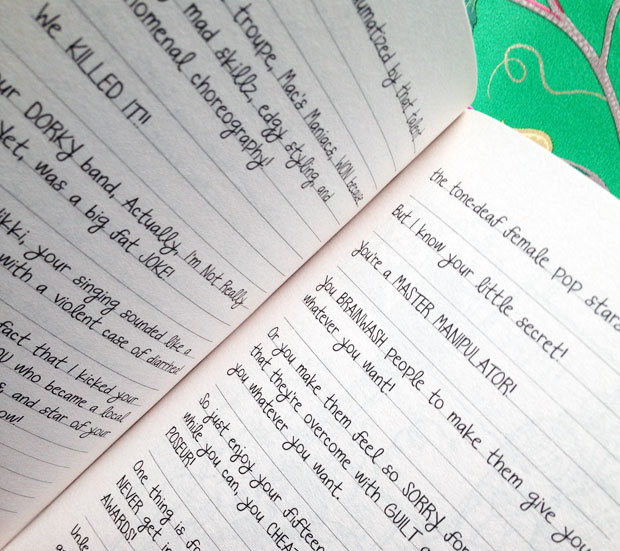 aumatized by that talent
troupe, Mac's Maniacs, WON because
mad skillz, edgy styling, and
phenomenal choreography!
We KILLED IT!!
DORKY band, Actually, I'm Not Really
Yet, was a big fat JOKE!
your singing sounded like a
with a violent case of diarrhea!
fact that I kicked your
who became a local
and star of your
now!
the tone-deaf female pop stars
But I know your little secret!
You're a MASTER MANIPULATOR!
You BRAINWASH people to make them give you
whatever you want!
Or you make them feel so SORRY for
that they're overcome with GUILT
you whatever you want.
So just enjoy your fifteen
while you can, you CHEA
POSEUR!
One thing is fr
NEVER get in
AWARDS!
Unle